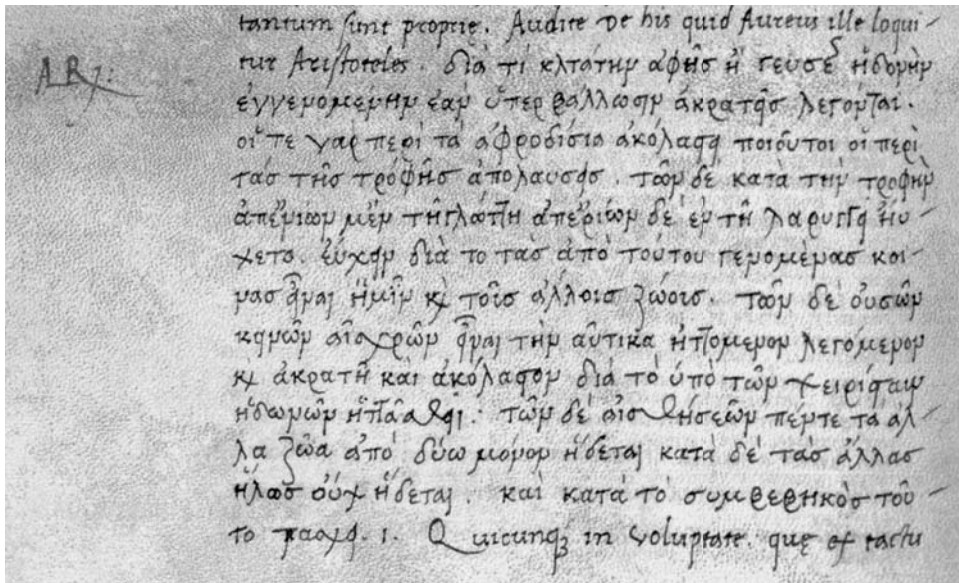 tantum sunt proprie. Audite de his quid Aureus ille loqui-
tur Aristoteles. διὰ τί κλτάτην αφῆσ ἢ γεύσε ἡδονὴν
εγγενομένην εαν ὕπερβάλλωσιν ἀκρατεῖσ λεγονται.
οἵ τε γαρ περι τὰ αφροδίσια ακόλαστοι ποιοῦτοι οἵ περὶ
τάσ τῆσ τρόφῆσ ἀπολαυσεισ. τῶν δὲ κατὰ τὴν τροφὴν
ἀπενίων μὲν τῆ γλώττη ἀπενίων δὲ εν τῆ λαρυγγι ἡυ-
χετο. εὔχειν διὰ το τασ ἀπὸ τούτου γενομένασ κοι-
νασ εἶναι ἡμῖν καὶ τοῖσ άλλοισ ζώοισ. τῶν δὲ ουσῶν
κοινῶν αἰσχρῶν εἶναι τὴν αὐτικα ἡττομενον λεγόμενον
καὶ ακρατῆ καὶ ακόλασον διὰ τὸ ὑπὸ τῶν χειρίσαιν
ἡδωνῶν ἡττᾶσθαι: τῶν δὲ αἰσθήσεῶν πέντε τα αλ-
λα ζῶα ἀπὸ δύω μόνον ἥδεται κατὰ δὲ τὰσ ἄλλασ
ἢ λωσ οὐχ ἥδεται. καὶ κατὰ τὸ συμβεβηκὸσ τοῦ-
το πασχει. i. Quicunqꝫ in voluptate. quę ex tactu